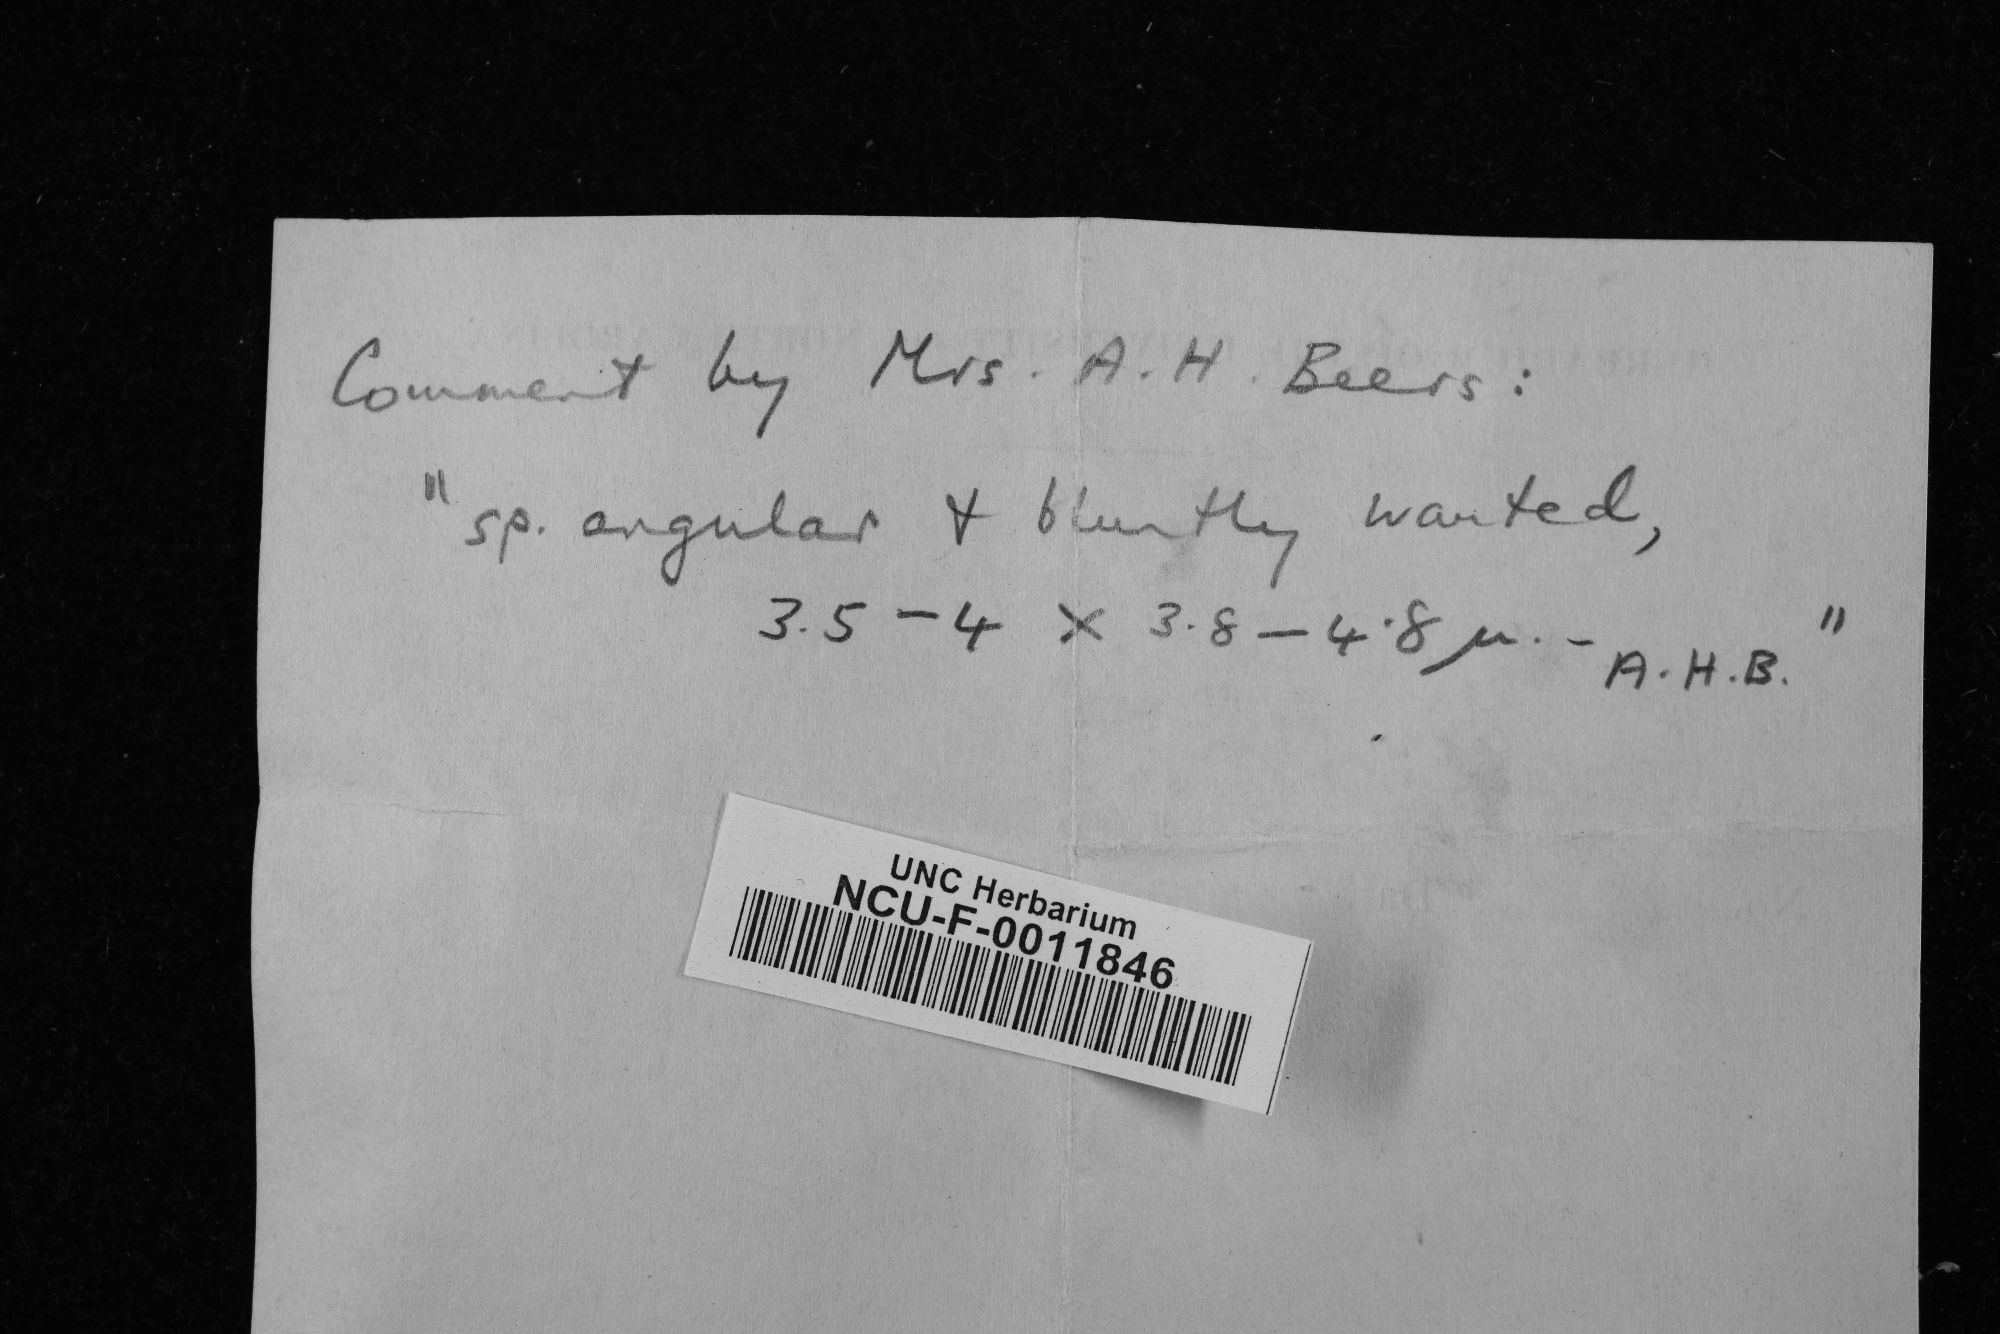 Comment by Mrs. A. H. Beers:
"sp. angular + bluntly warted,
3.5 – 4 × 3.8 – 4.8 μ. – A.H.B."
UNC Herbarium
NCU-F-0011846